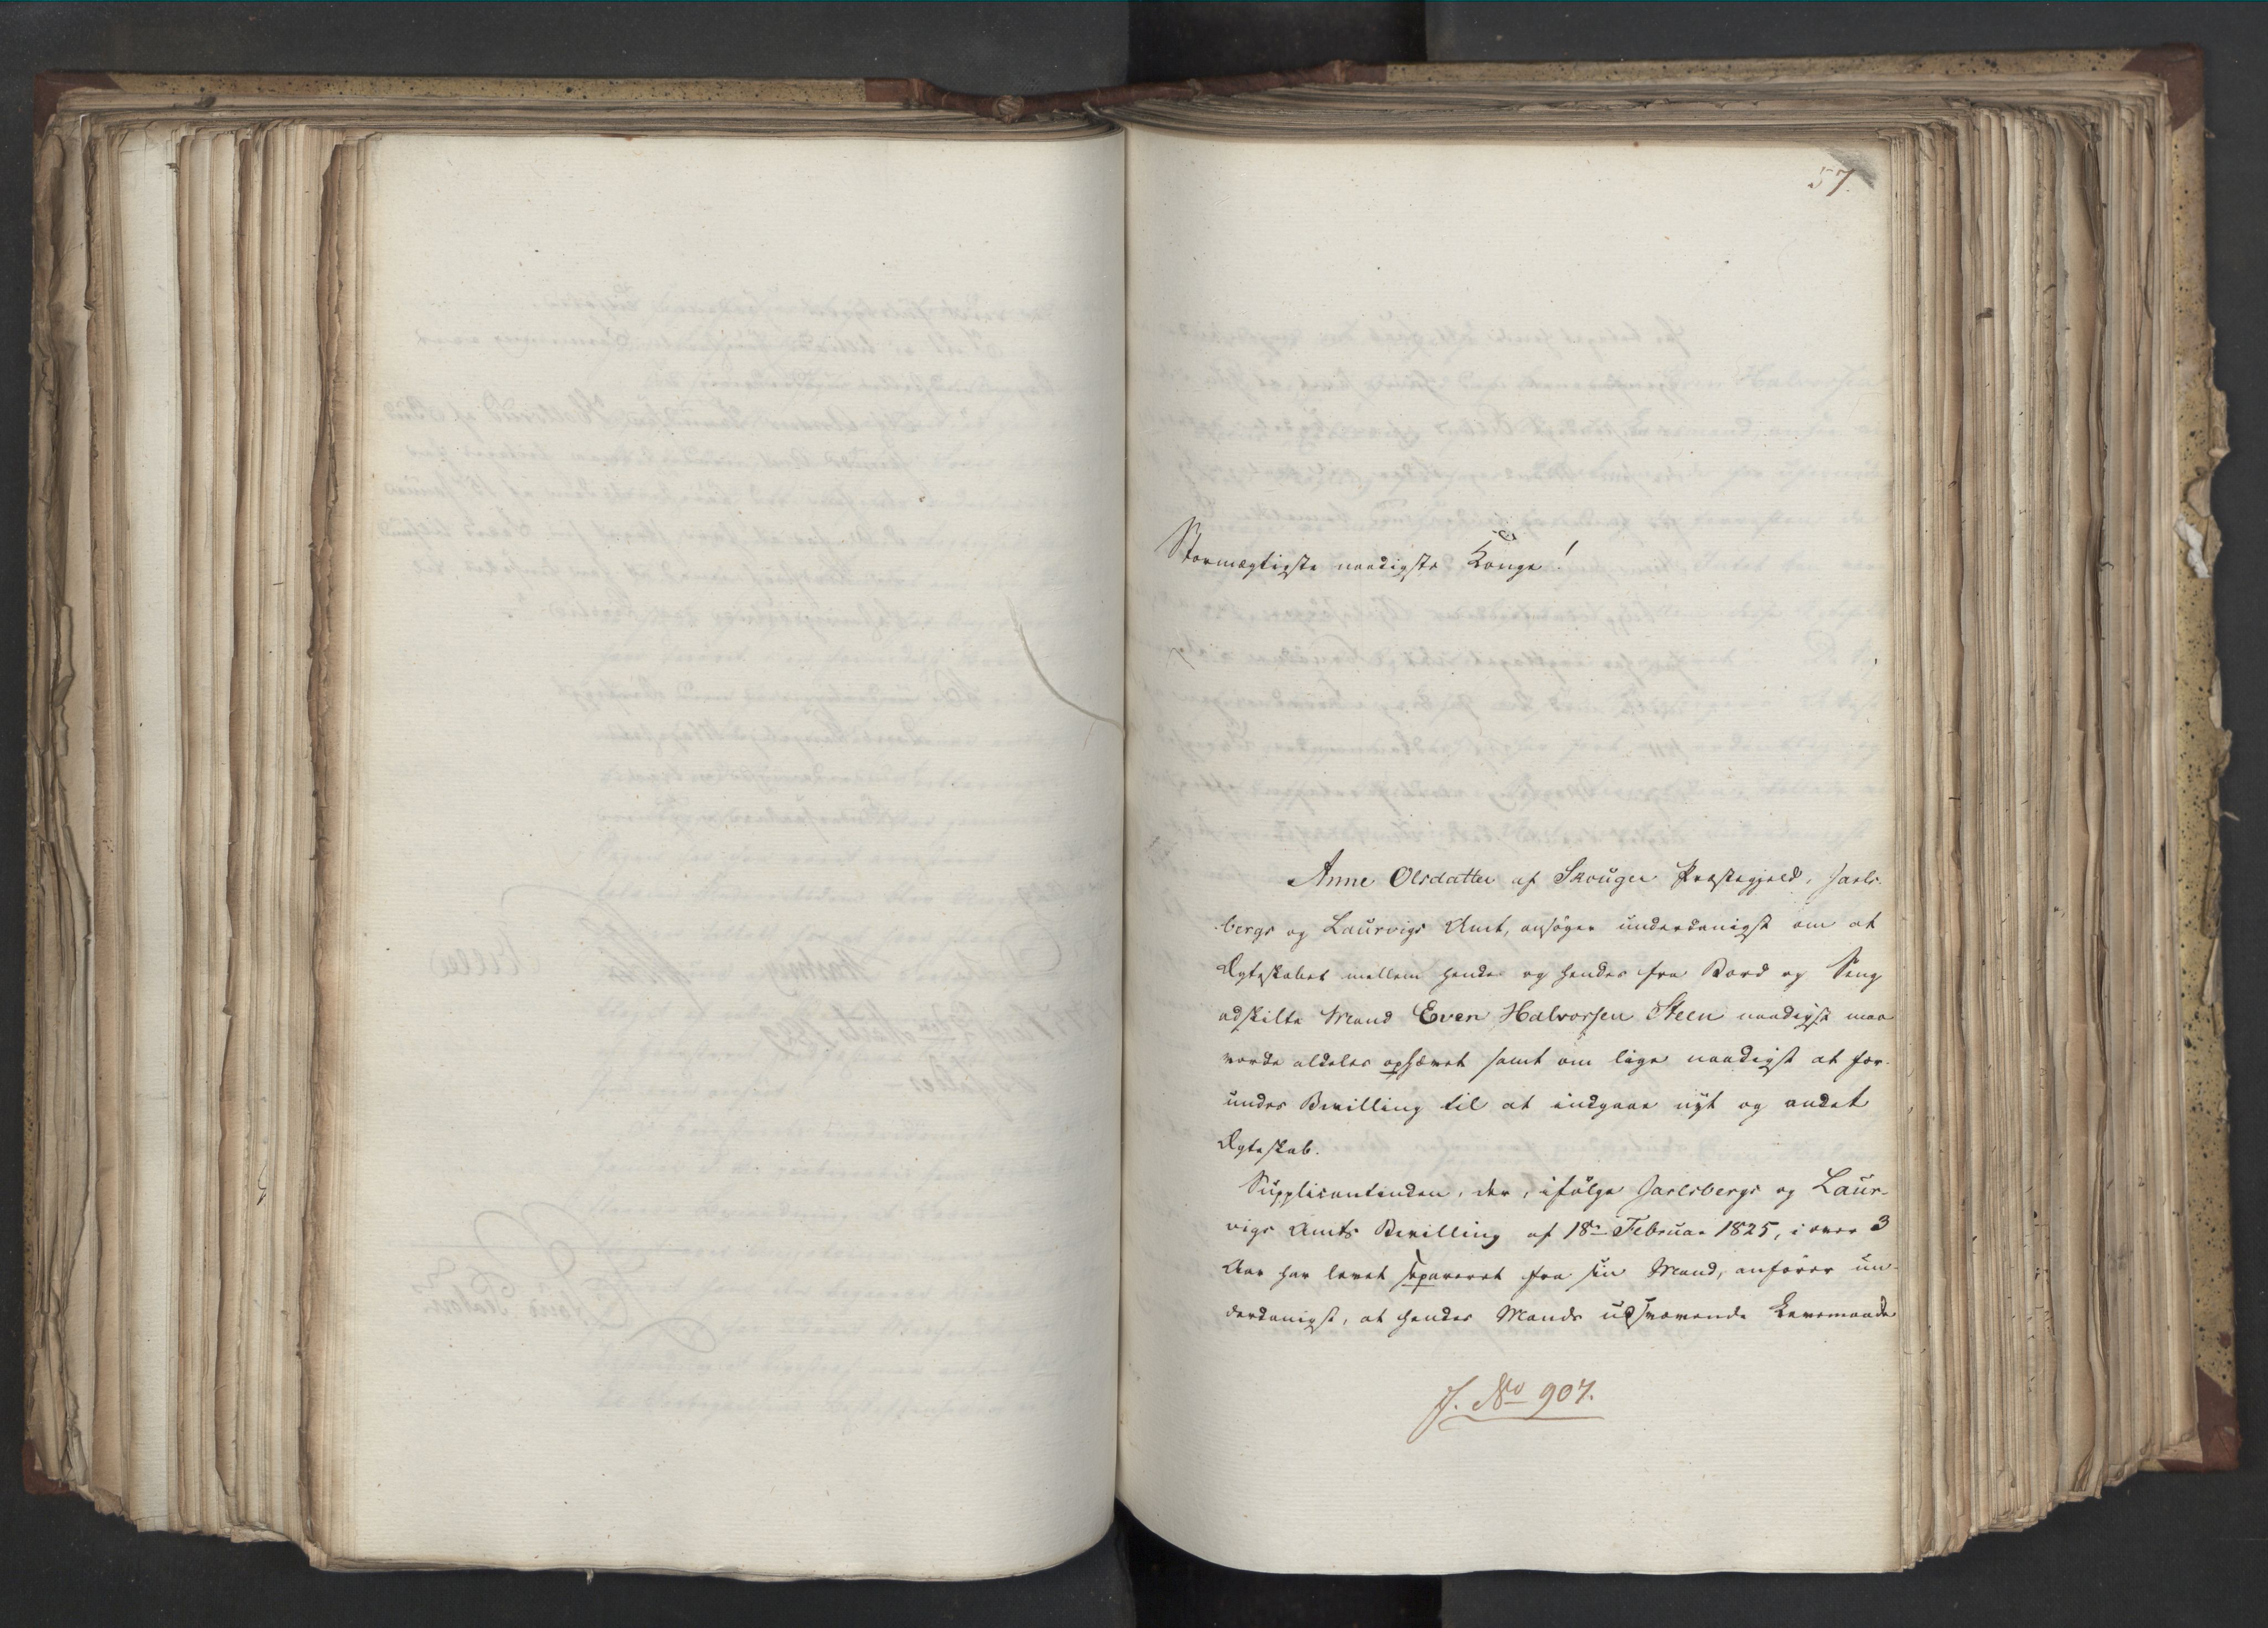 57.
Stormægtigste naadigste Konge!
Anne Olsdatter af Skouger Præstegjeld, Jarls-
bergs og Laurvigs Amt, ansøger underdanigst om at
Ægteskabet mellem hende og hendes fra Bord og Seng
adskilte Mand Even Halvorsen Steen naadigst maa
vorde aldeles ophævet samt om lige naadigst at for-
undes Bevilling til at indgaae nyt og andet
Ægteskab.
Supplicantinden, der, ifølge Jarlsbergs og Laur-
vigs Amts Bevilling af 18de Februar 1825, i over 3
Aar har levet separeret fra sin Mand, anfører un-
derdanigst, at hendes Mands udsvævende Levemaade
J. No 907.